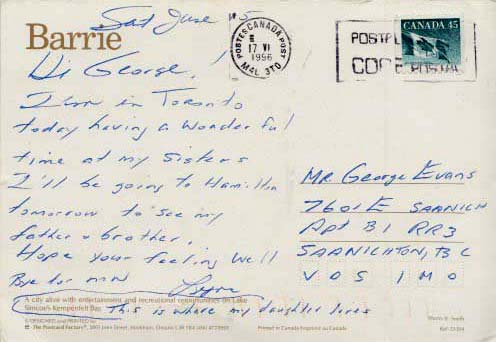 Sat June 15
Barrie
Hi George,
I am in Toronto
today having a wonderful
time at my sisters
I'll be going to Hamilton
tomorrow to see my
father & brother.
Hope your feeling Well
Bye for now
A city alive with entertainment and recreational opportunities on Lake
Simcoe's Kempenfelt Bay.
This is where my daughter lives
DESIGNED and PRINTED by
The Postcard Factory
Printed in Canada Imprimé au Canada
POSTES CANADA POST
17 VI
1996
M4L 3T0
POSTAL
CODE POSTAL
CANADA 45
Mr George Evans
7601 E SAANICH
Apt B1 RR3
SAANICHTON, BC
V0S 1M0